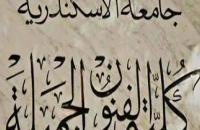 جامعة الاسكندرية
كلية الفنون الجميلة